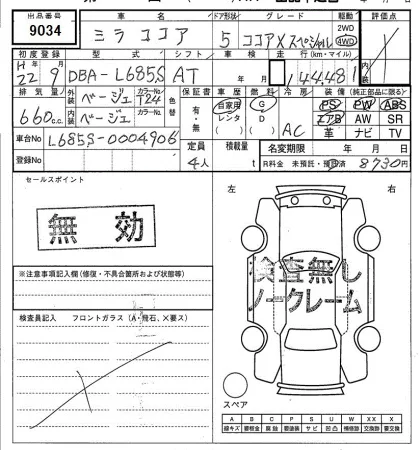 出品番号 車名 ドア形状 グレード 駆動 評価点
9034 ミラ ココア 5 ココアXスペシャル 2WD 4WD
初度登録 型式 シフト 車検 走行(km・マイル)
H22 9 DBA-L685S AT 年 月 144481
排気量 外装 ベージュ カラーNo. T24 色替 保証書 車歴 燃料 冷房 装備(純正部品に限る)
660c.c. 内装 ベージュ カラーNo. 有・無 自家用 レンタ G D AC PS PW ABS
エアB AW SR
革 ナビ TV
車台No L685S-0004906 定員 積載量 名変期限 年 月 日
登録No 4人 t R料金 未預託・預託済 8730円
セールスポイント 左 右
無効
※注意事項記入欄(修復・不具合箇所および状態等)
検査無し
ノークレーム
検査員記入 フロントガラス(A・飛石、X要ス)
スペア
A B C P S U W X XX
線キズ 要板金 腐蝕 要塗装 サビ 凹凸 補修跡 要交換 交換済